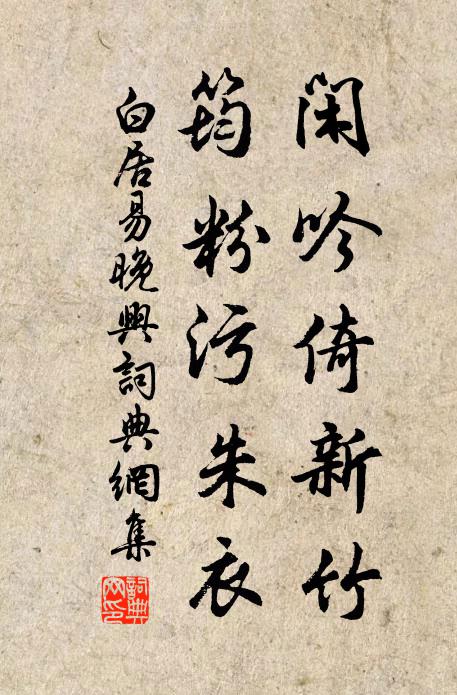 閑吟倚新竹
筠粉污朱衣
白居易晚興詞典網集
詞典網印